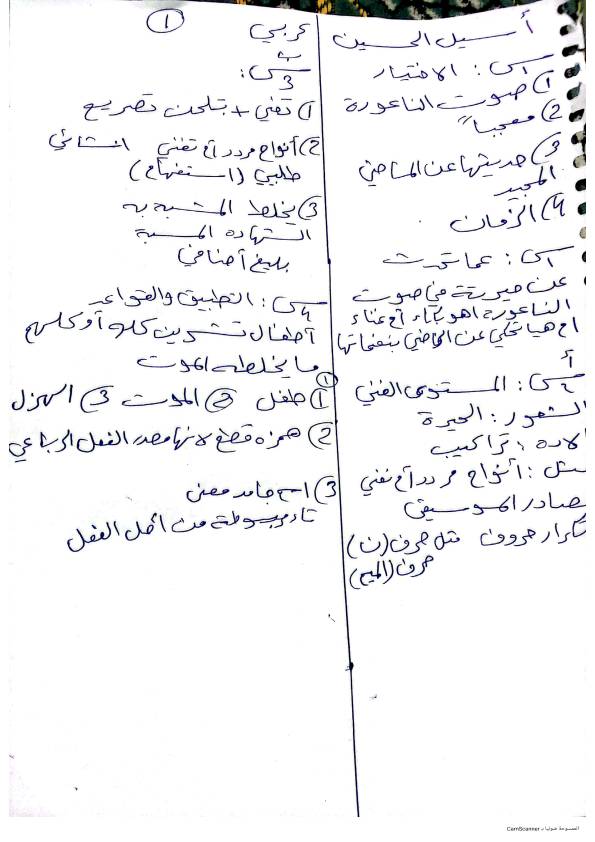 أسيل الحسين
س١: الاختيار
1) صوت الناعورة
2) معجباً
3) حديثها عن الماضي
المجيد
4) الزمان
س١: عما تحدث
عن حيرته في صوت
الناعورة اهو بكاء أم غناء
ام هيا تحكي عن الماضي بنغماتها
أ
س٢: المستوى الفني
الشعور: الحيرة
الاداة: تراكيب
مثل: أنواح مردد أم تغني
مصادر الموسيقى
تكرار حروف مثل حرف (ن)
حرف (الميم)
عربي
1
ب
س٣:
1) تغني + بتلحن تصريع
2) أنواح مردد أم تغني انشائي
طلبي (استفهام)
3) يخلط المشبه به
الشهادة المشبه
بليغ اضافي
س٤: التطبيق والقواعد
أطفال تشرين كله أو كلهم
ما يخلطه الموت
1
1) طفل 2) الموت 3) الهزل
2) همزه قطع لانها مصدر الفعل الرباعي
3) اسم جامد معنى
تاء مبسوطة من أصل الفعل
الممسوحة ضوئيا بـ CamScanner